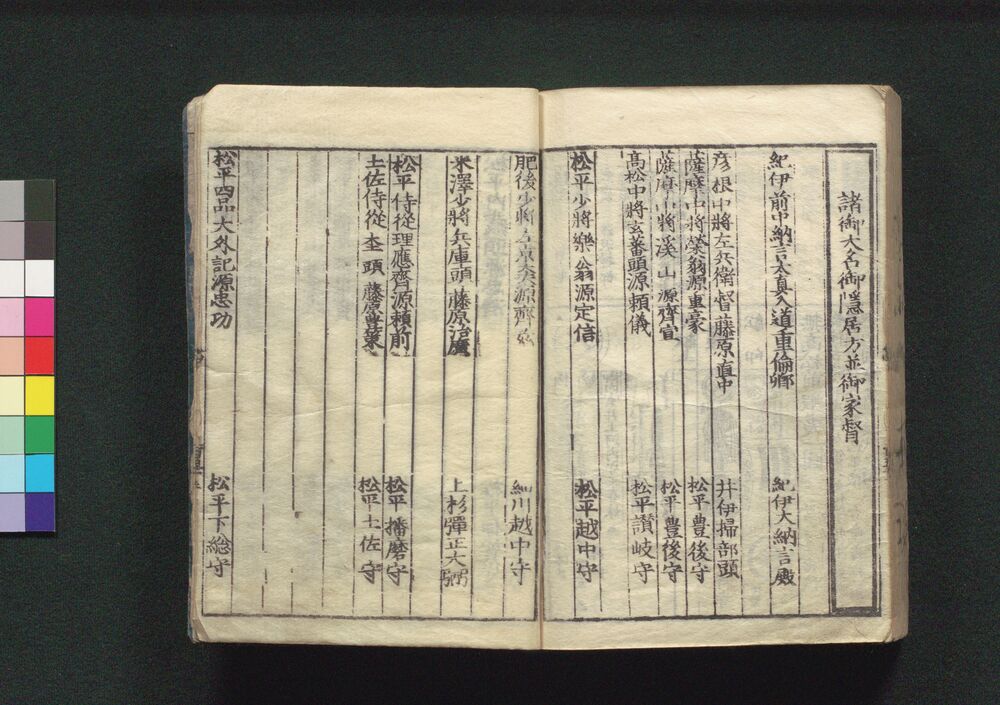 諸御大名御隠居方並御家督
紀伊前中納言太真入道重倫卿 紀伊大納言殿
彦根中將左兵衛督藤原直中 井伊掃部頭
薩摩中將榮翁源重豪 松平豊後守
薩摩少將溪山源齊宣 松平豊後守
高松中將玄蕃頭源頼儀 松平讃岐守
松平少將樂翁源定信 松平越中守
肥後少將 源齊 細川越中守
米澤少將兵庫頭藤原治廣 上杉彈正大弼
松平侍從理應齊源頼前 松平播磨守
土佐侍從 頭藤原豊 松平土佐守
松平四品大外記源忠功 松平下総守